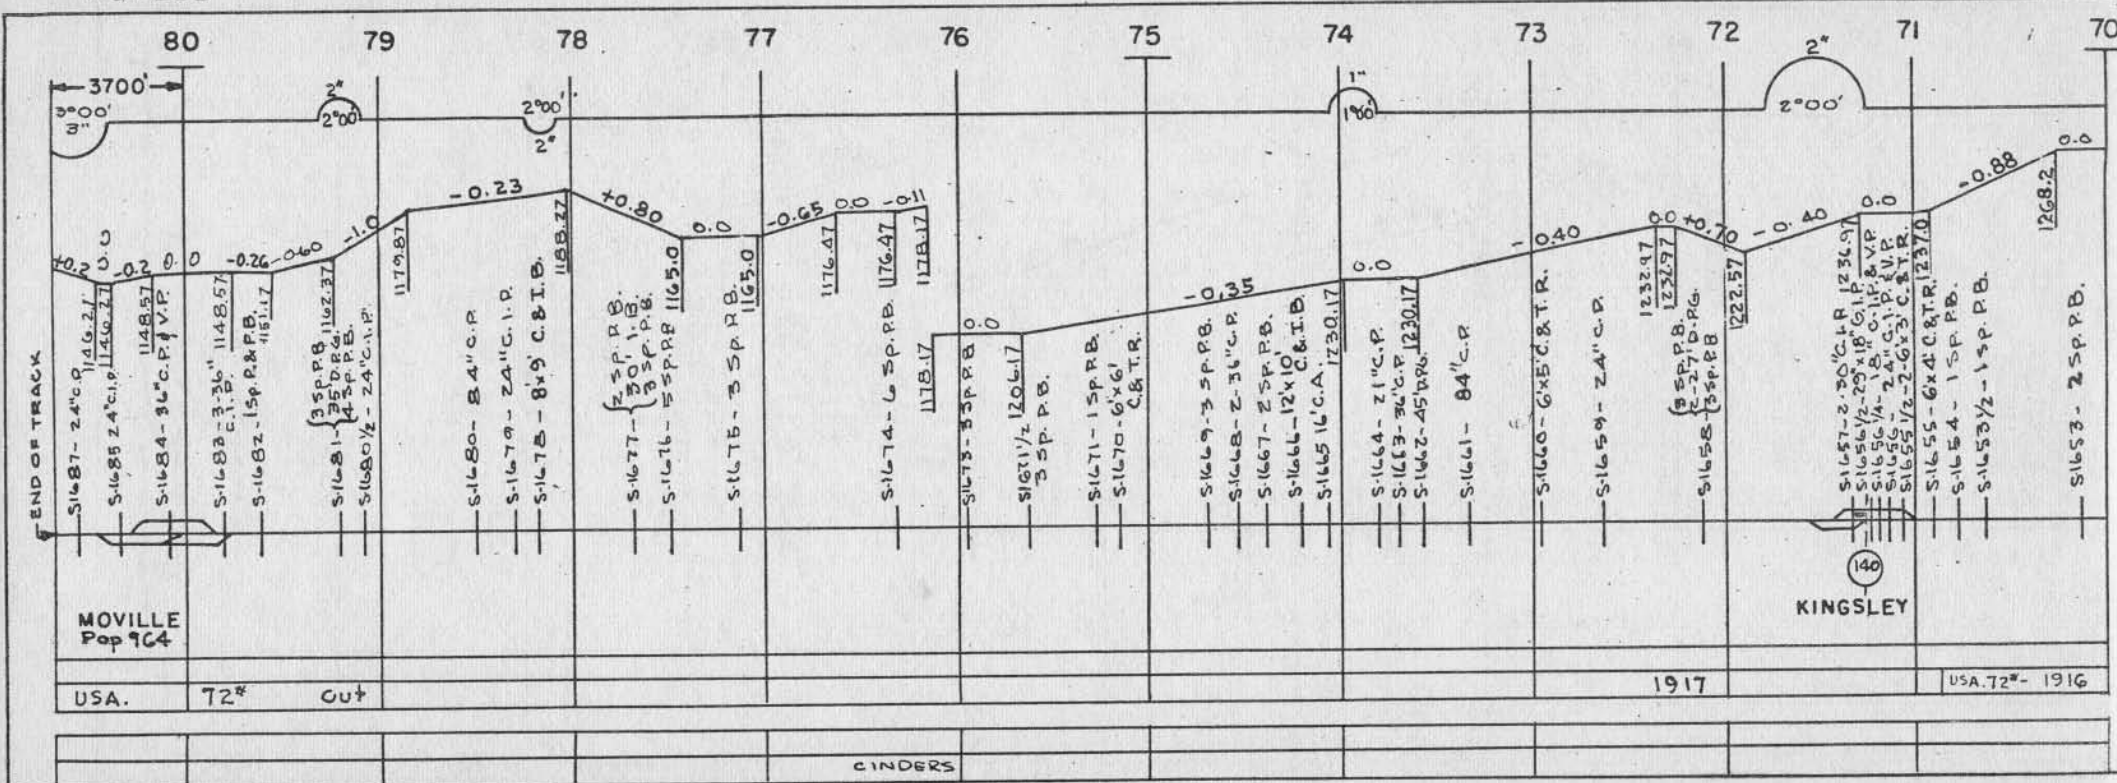 80 79 78 77 76 75 74 73 72 71 70
3700'
3°00'
3"
2"
2°00'
2°00'
2"
1"
1°00'
2"
2°00'
+0.2
0.0
-0.2
0.0
-0.26
-0.60
-1.0
-0.23
+0.80
0.0
-0.65
0.0
-0.11
0.0
-0.35
0.0
-0.40
0.0
+0.70
-0.40
0.0
-0.88
0.0
1146.27
1146.27
1148.57
1148.57
1151.17
1162.37
1179.87
1188.27
1165.0
1165.0
1176.47
1176.47
1178.17
1178.17
1206.17
1230.17
1230.17
1232.97
1232.97
1222.57
1236.97
1237.0
1268.2
END OF TRACK
S-1687-24"C.P.
S-1685 24"C.I.P.
S-1684-36"C.P.& V.P.
S-1683-3-36"
C.I.P.
S-1682-1 Sp. P.& P.B.
S-1681-
3 SP. P.B.
35' D.P.G.
4 SP. P.B.
S-1680½-24"C.I.P.
S-1680-84"C.P.
S-1679-24"C.I.P.
S-1678-8'x9' C.& I.B.
S-1677-
2 SP. P.B.
30' I.B.
3 SP. P.B.
S-1676-5 SP. P.B.
S-1675-3 SP. P.B.
S-1674-6 SP. P.B.
S-1673-3 SP. P.B.
S-1671½
3 SP. P.B.
S-1671-1 SP. P.B.
S-1670-6'x6'
C.& T.R.
S-1669-3 SP. P.B.
S-1668-2-36"C.P.
S-1667-2 SP. P.B.
S-1666-12'x10'
C.& I.B.
S-1665 16'C.A.
S-1664-21"C.P.
S-1663-36"C.P.
S-1662-45'D.P.G.
S-1661-84"C.P.
S-1660-6'x5'C.& T.R.
S-1659-24"C.P.
S-1658-
3 SP. P.B.
2-27' D.P.G.
3 SP. P.B.
S-1657-2-30"C.I.P.
S-1656½-29"x18"C.I.P.
S-1656¼-18"C.I.P.& V.P.
S-1656-24"C.I.P.& V.P.
S-1655½-2-6'x3' C.& T.R.
S-1655-6'x4' C.& T.R.
S-1654-1 SP. P.B.
S-1653½-1 SP. P.B.
S-1653-2 SP. P.B.
140
MOVILLE
Pop 964
KINGSLEY
USA. 72# Cut 1917 USA. 72#-1916
CINDERS